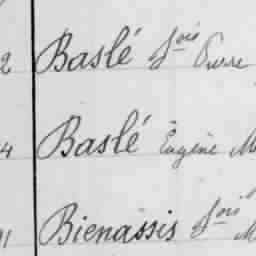 2 Baslé Fois Pierre
4 Baslé Eugène M
91 Bienassis Fois M